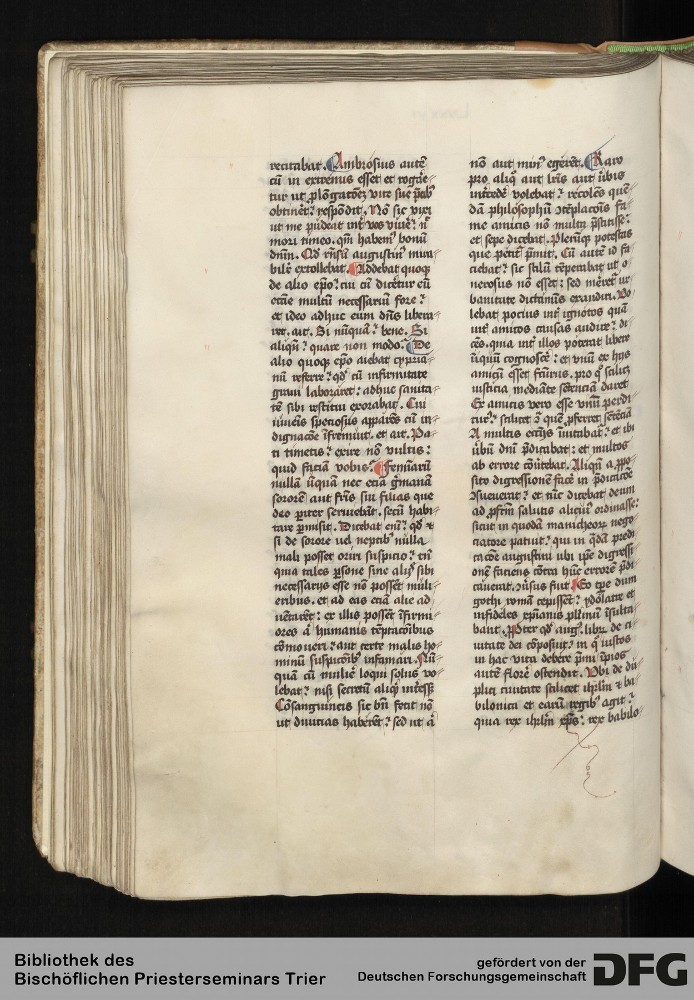 recitabat. Ambrosius autē
cū in extremis esset et rogāe-
tur ut ꝓlōgatōeꝫ vite sue p̄cib᷒
obtineret: respōdit. Nō sic vixi
ut me pudeat int᷒ vos viuē: n̄
mori timeo. qm̄ habem᷒ bonū
dnm̄. Qd̄ rn̄sū augustin᷒ mira-
bilr̄ extollebat. Addebat quoqꝫ
de alio ep̄o: cui cū dicēt᷒ eū
ecc̄ie multū necessariū fore:
et ideo adhuc eum dn̄s libera-
ret. ait. Si nūquā: bene. Si
aliqn̄: quare non modo. De
alio quoqꝫ ep̄o aiebat cypria-
nū referre: qd̄ cū infirmitate
graui laboraret: adhuc sanita-
tē sibi restitui exorabat. Cui
iuuenis speciosus apparēs cū in-
dignacōe īfremuit. et ait. Pa-
ti timetis: exire nō vultis:
quid faciā vobis. Feminarū
nullā ūquā nec eciā ḡmanā
sororē aut fr̄is sui filias que
deo pariter seruiebāt. secū habi-
tare p̄misit. Dicebat em̄: qd̄ et
si de sorore uel neptib᷒ nulla
mali posset oriri suspicio: tn̄
quia tales ꝑsone sine aliꝫ sibi
necessarijs esse nō possēt muli-
eribus. et ad eas eciā alie ad-
uētarēt: ex illis possēt īfirmi-
ores a᷒ humanis tēptacōibus
cōmoueri: aut certe malis ho-
minū suspicōib᷒ infamari. Nū-
quā cū muliē loqui solus vo-
lebat: nisi secretū aliqd̄ int᷒essꝫ
Cōsanguineis sic bn̄ fecit nō
ut diuicias haberēt: sed ut a᷒
nō aut min᷒ egērēt. Raro
pro aliqͦ aut lr̄is aut v̄bis
int᷒cedē volebat: recolēs quē-
dā philosophū ꝯtēplacōis fa-
me amicis nō multa p̄stitisse:
et sepe dicebat. Plerūqꝫ potestas
que petit᷒ p̄mit. Cū autē id fa-
ciebat: sic stilū tēperabat ut o-
nerosus nō esset: sed merēt᷒ ur-
banitate dictaminis exaudiri. Vo-
lebat pocius int᷒ ignotos quā
int᷒ amicos causas audire: di-
cēs. quia int᷒ illos poterat libere
iniquū cognoscē: et vnū ex hijs
amicū esset fc̄urus. pro qͦ scilicꝫ
iusticia mediāte sētenciā daret
Ex amicis vero esse vnū perdi-
tur᷒: scilicet ꝯ quē ꝓferret sētēciā
A multis ecc̄ijs inuitabat᷒: et ibi
v̄bū dn̄i p̄dicabat: et multos
ab errore cōuertebat. Aliqn̄ a ꝓpo-
sito digressionē facē in p̄dicacōe
ꝯsueuerat: et tūc dicebat deum
ad ꝓfc̄m salutis alicui᷒ ordinasse:
sicut in quodā manicheoꝝ nego-
ciatore patuit: qui in q̄dā predi-
cacōe augustini ubi ip̄e digressi-
onē faciens cōtra hūc errorē p̄di-
cauerat. ꝯuersus fuit. Eo tp̄e dum
gothi romā cepissēt: ydolatre et
infideles xp̄ianis plurimū īsulta-
bant. Propter qd̄ aug᷒ librū de ci-
uitate dei cōposuit: in qͦ iustos
in hac vita debere p̄mi īpios
autē florē ostendit. Vbi de du-
plici ciuitate scilicet ihrl̄m et ba-
bilonica et earū regib᷒ agit:
quia rex ihrl̄m xp̄s: rex babilo-
Bibliothek des
Bischöflichen Priesterseminars Trier
gefördert von der
Deutschen Forschungsgemeinschaft
DFG